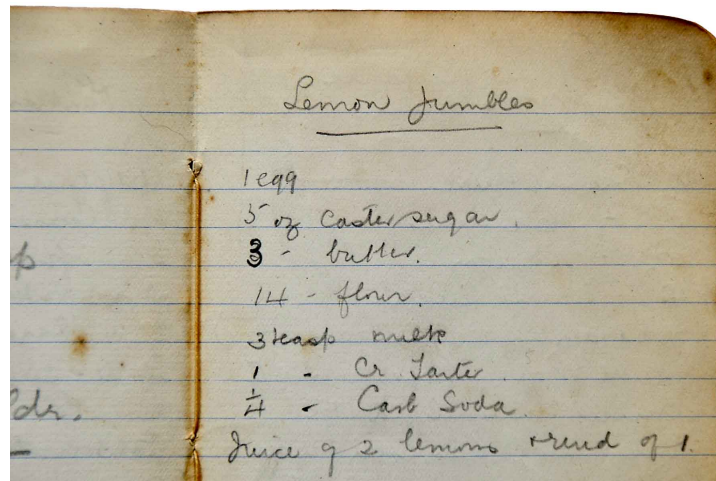 Lemon Jumbles
1 egg
5 oz caster sugar.
3 - butter.
14 - flour.
3 teasp milk
1 - Cr Tarter.
1/4 - Carb Soda.
Juice of 2 lemons + rind of 1.
p
ldr.